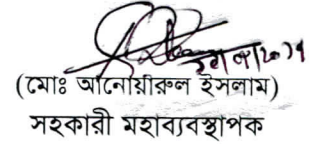 (মোঃ আনোয়ীরুল ইসলাম)
সহকারী মহাব্যবস্থাপক